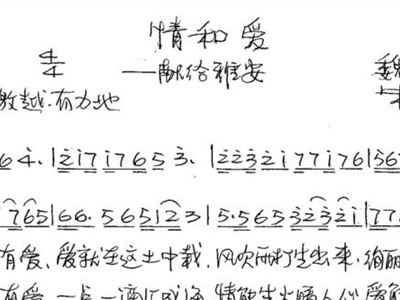 情和爱
4/4 ——献给雅安 魏
激越.有力地
6 4. | 2 1 7 1 7 6 5 3. | 2 2 3 2 1 7 7 1 7 6 | 5 6
7 6 5 | 6 6. 5 6 5 1 2 3 | 5. 5 6 5 3 2 3 2 1 | 7 7
有爱、爱就在这土中栽,风吹雨打生出来,
有爱.一点一滴汇成海